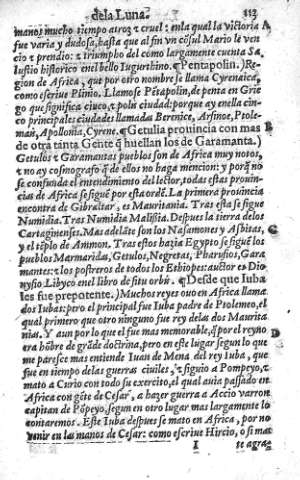 dela Luna. 113
manos mucho tiempo atroz ⁊ cruel: enla qual la victoria A
fue varia y dudosa, hasta que al fin vn cōsul Mario le ven
cio ⁊ prendio: ⁊ triumpho del como largamente cuenta Sa
lustio historico enel bello Iugurthino. ¶ Pentapolin.) Re
gion de Africa, que por otro nombre se llama Cyrenaica,
como escriue Plinio. Llamose Pētapolin, de penta en Grie
go que significa cinco, ⁊ polis ciudad: por que ay enella cin-
co principales ciudades llamadas Berenice, Arsinoe, Ptole-
mais, Apollonia, Cyrene. ¶ Getulia prouincia con mas B
de otra tanta Gente q̄ huellan los de Garamanta.)
Getulos ⁊ Garamantas pueblos son de Africa muy notos,
⁊ no ay cosmografo q̄ de ellos no haga mencion: y porq̄ no
se confunda el entendimiento del lector, todas estas prouin-
cias de Africa se siguē por esta ordē. La primera prouincia
encontra de Gibraltar, es Mauritania. Tras esta se sigue
Numidia. Tras Numidia Massilia. Despues la tierra delos
Cartaginenses. Mas adelāte son los Nasamones y Asbitas, C
y el tēplo de Ammon. Tras estos hazia Egypto se siguē los
pueblos Marmaridas, Getulos, Negretas, Pharusios, Gara
mantes: ⁊ los postreros de todos los Ethiopes: auctor es Dio-
nysio Libyco enel libro de situ orbis. ¶ Desde que Iuba
les fue prepotente.) Muchos reyes uuo en Africa llama
dos Iubas: pero el principal fue Iuba padre de Ptolemeo, el
qual primero que otro ninguno fue rey delas dos Maurita
nias. Y aun por lo que el fue mas memorable, q̄ por el reyno D
era hōbre de grāde doctrina, pero en este lugar segun lo que
me paresce mas entiende Iuan de Mena del rey Iuba, que
fue en tiempo delas guerras ciuiles, ⁊ siguio a Pompeyo, ⁊
mato a Curio con todo su exercito, el qual auia passado en
Africa con gēte de Cesar, a hazer guerra a Accio varron
capitan de Pōpeyo, segun en otro lugar mas largamente lo
contaremos. Este Iuba despues se mato en Africa, por no
venir en las manos de Cesar: como escriue Hircio, o si mas
I te agra-